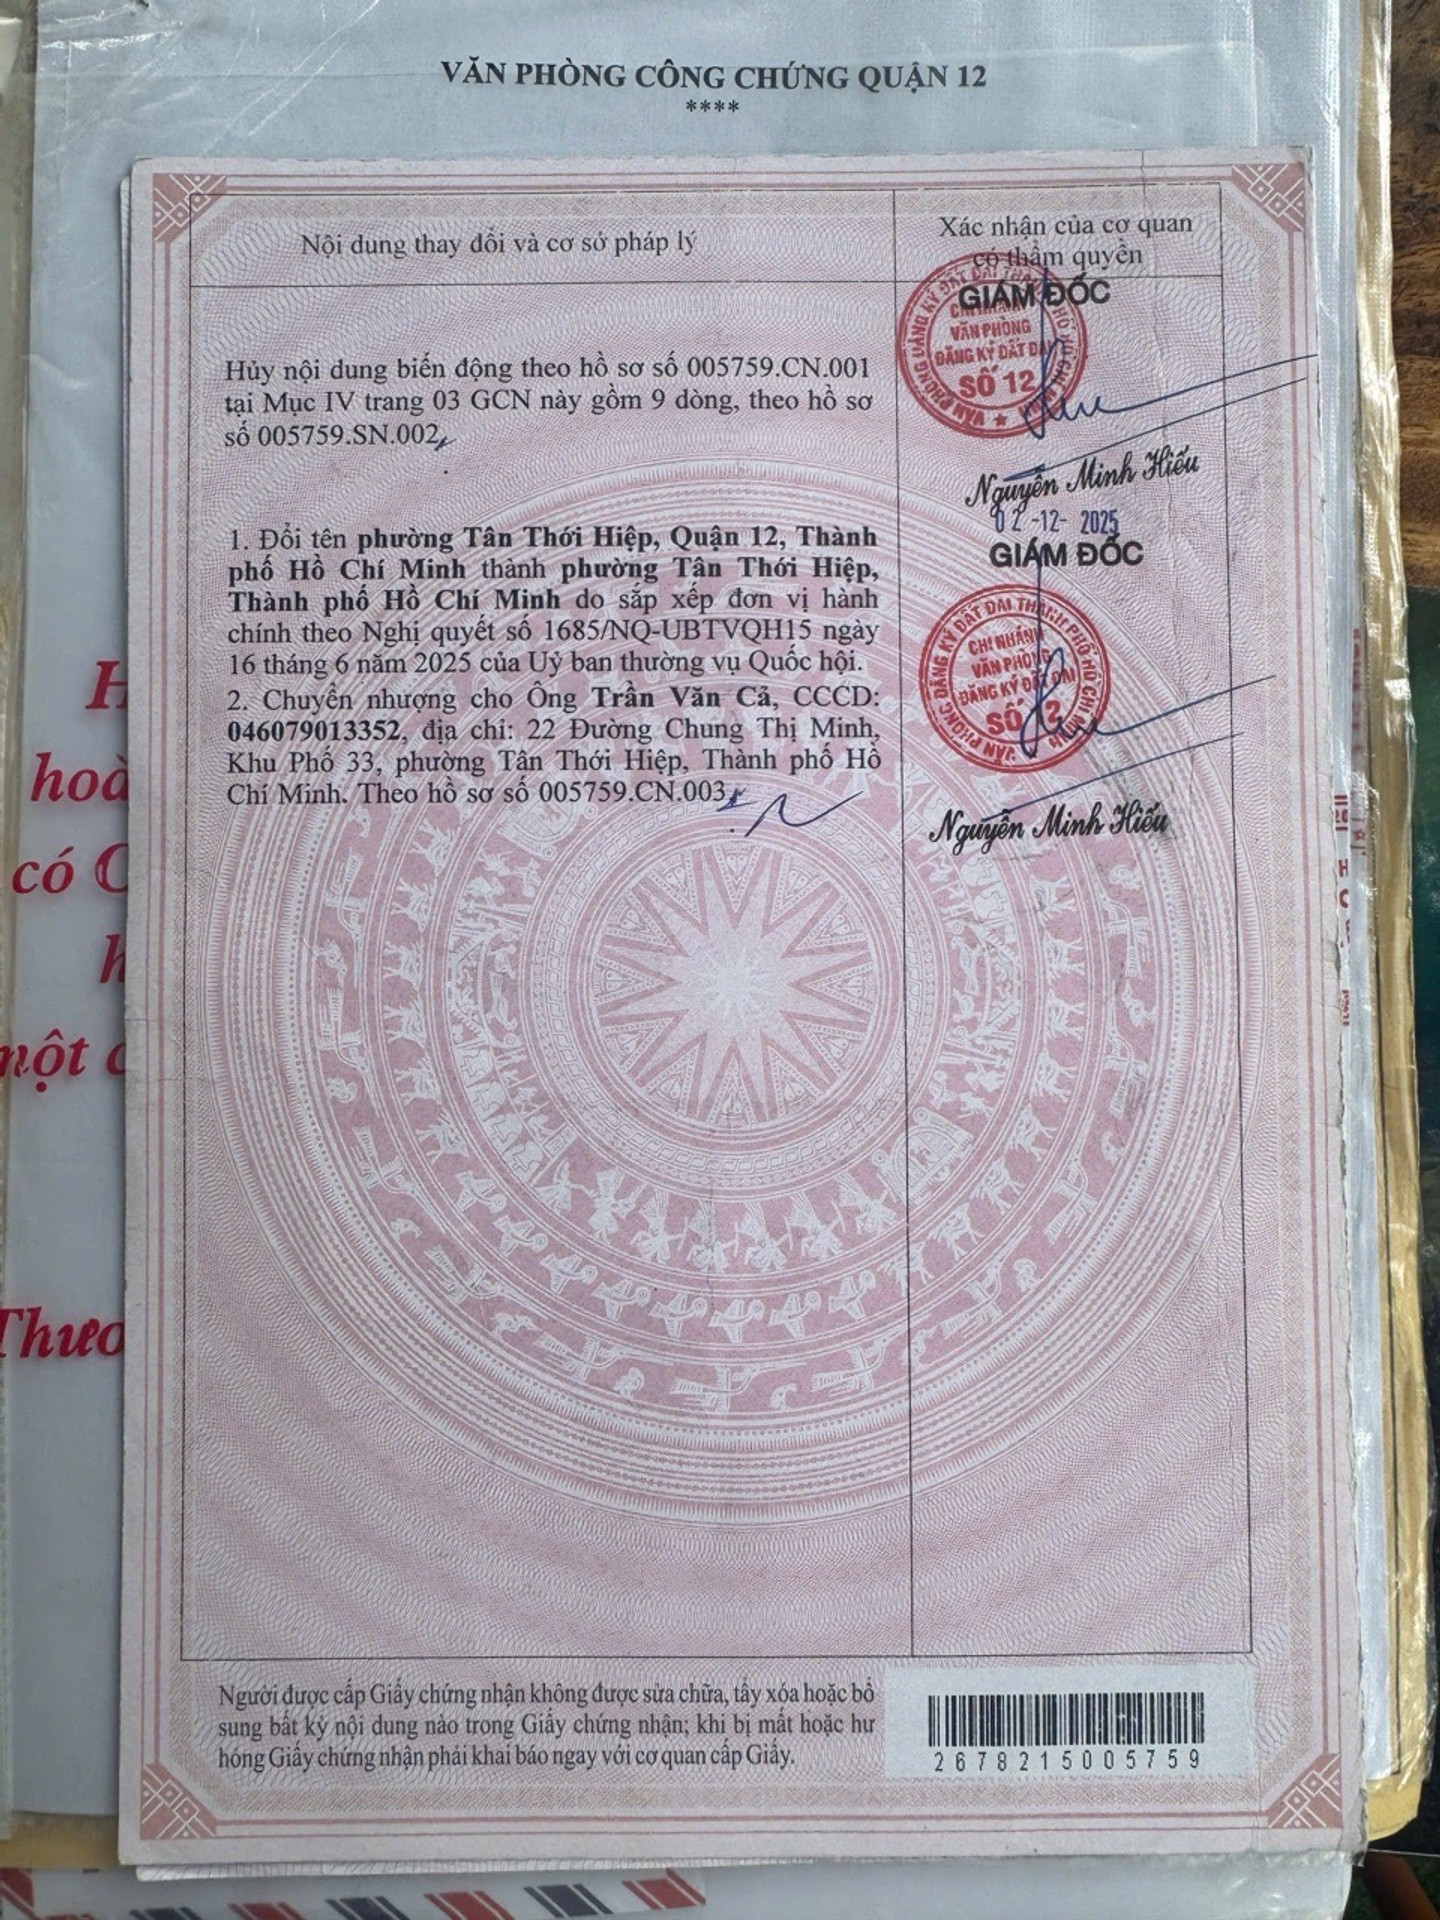 VĂN PHÒNG CÔNG CHỨNG QUẬN 12
****
Nội dung thay đổi và cơ sở pháp lý
Xác nhận của cơ quan
có thẩm quyền
GIÁM ĐỐC
Hủy nội dung biến động theo hồ sơ số 005759.CN.001
tại Mục IV trang 03 GCN này gồm 9 dòng, theo hồ sơ
số 005759.SN.002
VĂN PHÒNG ĐĂNG KÝ ĐẤT ĐAI THÀNH PHỐ HỒ CHÍ MINH
CHI NHÁNH
VĂN PHÒNG
ĐĂNG KÝ ĐẤT ĐAI
SỐ 12
Nguyễn Minh Hiếu
02-12-2025
GIÁM ĐỐC
1. Đổi tên phường Tân Thới Hiệp, Quận 12, Thành
phố Hồ Chí Minh thành phường Tân Thới Hiệp,
Thành phố Hồ Chí Minh do sắp xếp đơn vị hành
chính theo Nghị quyết số 1685/NQ-UBTVQH15 ngày
16 tháng 6 năm 2025 của Uỷ ban thường vụ Quốc hội.
2. Chuyển nhượng cho Ông Trần Văn Cả, CCCD:
046079013352, địa chỉ: 22 Đường Chung Thị Minh,
Khu Phố 33, phường Tân Thới Hiệp, Thành phố Hồ
Chí Minh. Theo hồ sơ số 005759.CN.003
VĂN PHÒNG ĐĂNG KÝ ĐẤT ĐAI THÀNH PHỐ HỒ CHÍ MINH
CHI NHÁNH
VĂN PHÒNG
ĐĂNG KÝ ĐẤT ĐAI
SỐ 12
Nguyễn Minh Hiếu
có
một
Người được cấp Giấy chứng nhận không được sửa chữa, tẩy xóa hoặc bổ
sung bất kỳ nội dung nào trong Giấy chứng nhận; khi bị mất hoặc hư
hỏng Giấy chứng nhận phải khai báo ngay với cơ quan cấp Giấy.
2678215005759